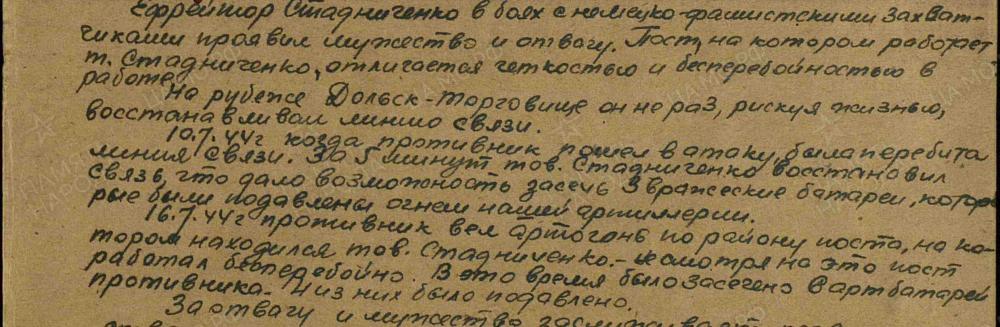 Ефрейтор Стадниченко в боях с немецко-фашистскими захват-
чиками проявил мужество и отвагу. Пост, на котором работает
т. Стадниченко, отличается четкостью и бесперебойностью в
работе.
На рубеже Дольск-Торговище он не раз, рискуя жизнью,
восстанавливал линию связи.
10.7.44г когда противник пошел в атаку, была перебита
линия связи. За 5 минут тов. Стадниченко восстановил
связь, что дало возможность засечь 3 вражеские батареи, кото-
рые были подавлены огнем нашей артиллерии.
16.7.44г противник вел артогонь по району поста, на ко-
тором находился тов. Стадниченко. - Несмотря на это пост
работал бесперебойно. В это время было засечено 8 артбатарей
противника. 4 из них было подавлено.
За отвагу и мужество заслуживает